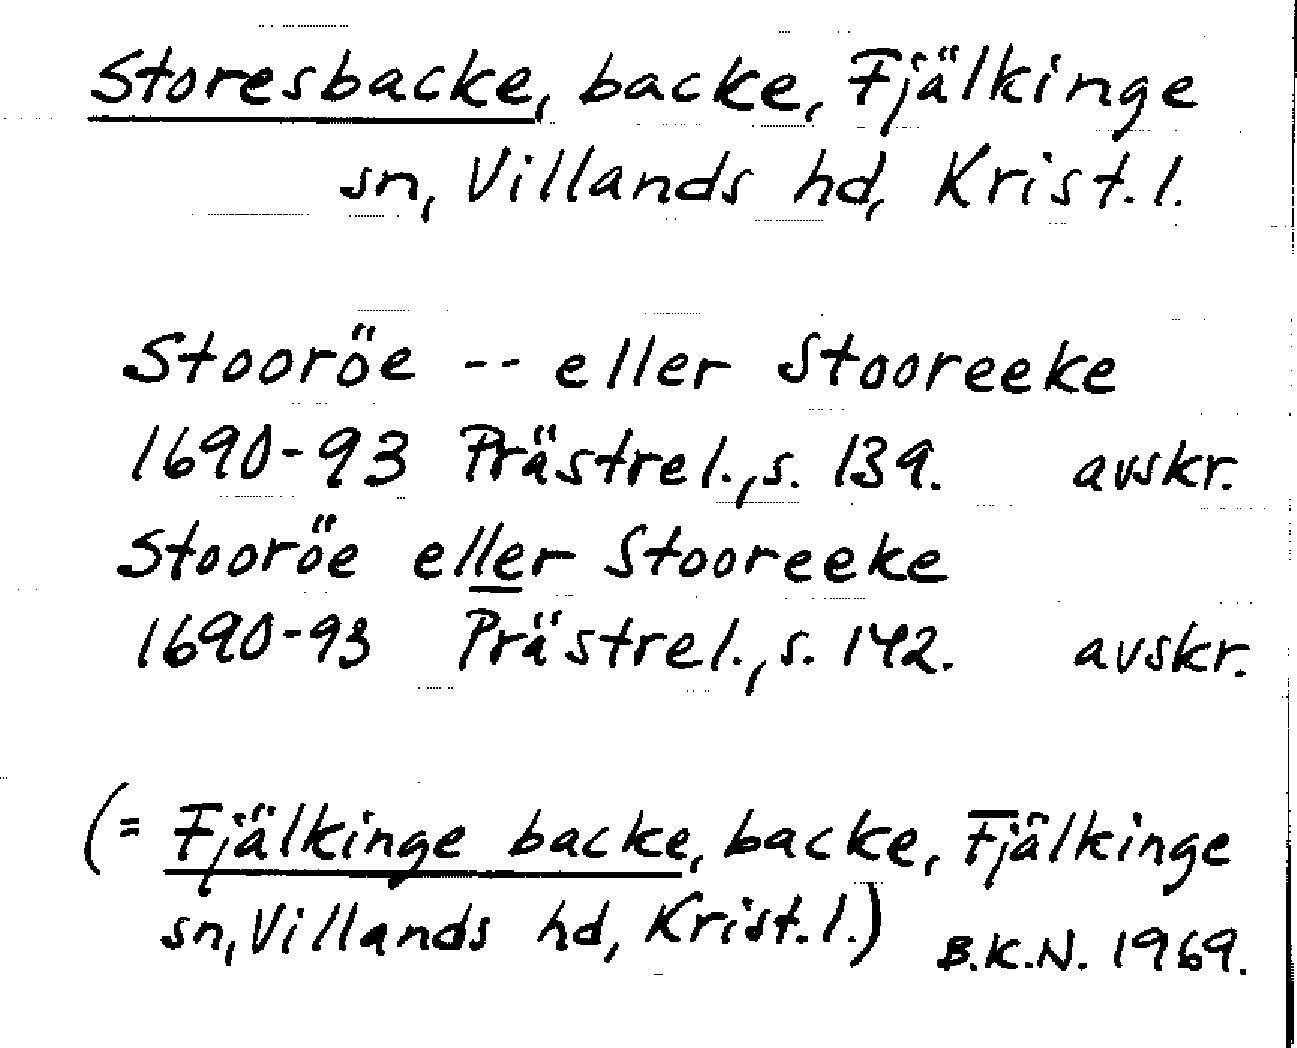 Storesbacke, backe, Fjälkinge
sn, Villands hd, Krist. l.
Stooröe -- eller Stooreeke
1690-93 Prästrel., s. 139. avskr.
Stooröe eller Stooreeke
1690-93 Prästrel., s. 142. avskr.
(= Fjälkinge backe, backe, Fjälkinge
sn, Villands hd, Krist. l.) B.K.N. 1969.